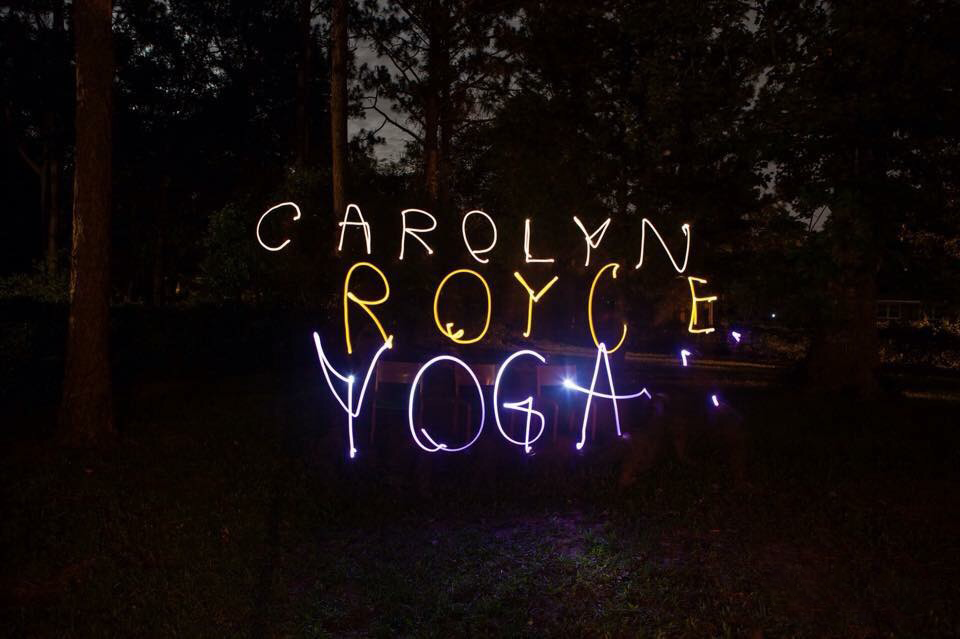 CAROLYN
ROYCE
YOGA